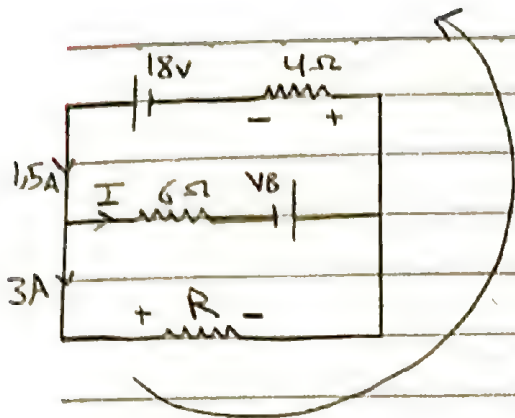 18V 4Ω
- +
1,5A
I 6Ω VB
3A
+ R -